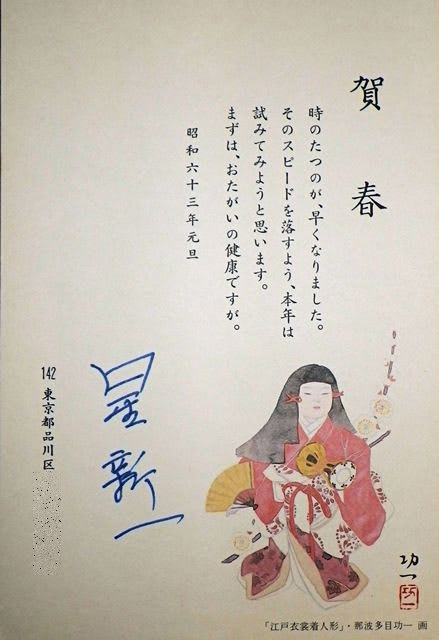 賀春
時のたつのが、早くなりました。
そのスピードを落すよう、本年は
試みてみようと思います。
まずは、おたがいの健康ですが。
昭和六十三年元旦
星新一
142 東京都品川区
功一
功一
「江戸衣裳着人形」・那波多目功一 画